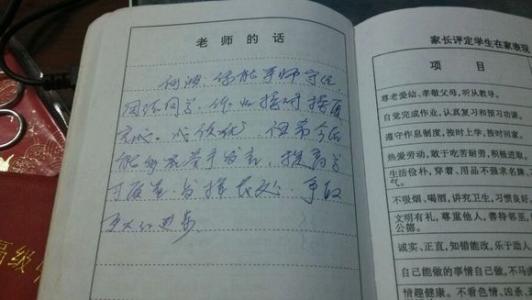 老师的话
你能尊师守纪，
团结同学，你如按时按质
完成。成绩优，但希今后
能够多举手发言，提高学
习质量 长处，争取
更大的进步
家长评定学生在家表现
项 目
尊老爱幼、孝敬父母,听从教导。
自觉完成作业,认真复习和预习功课。
遵守作息制度,按时上学,按时回家。
热爱劳动,敢于吃苦耐劳,积极进取
生活俭朴,穿着、用品不强求名牌、
气。
不吸烟、喝酒,讲究卫生,习惯良好
文明有礼,尊重他人,善待邻里
公德。
诚实、正直,知错能改,乐于助人
自己能做的事情自己做,不马
情趣健康。不看色情、凶杀、
高级